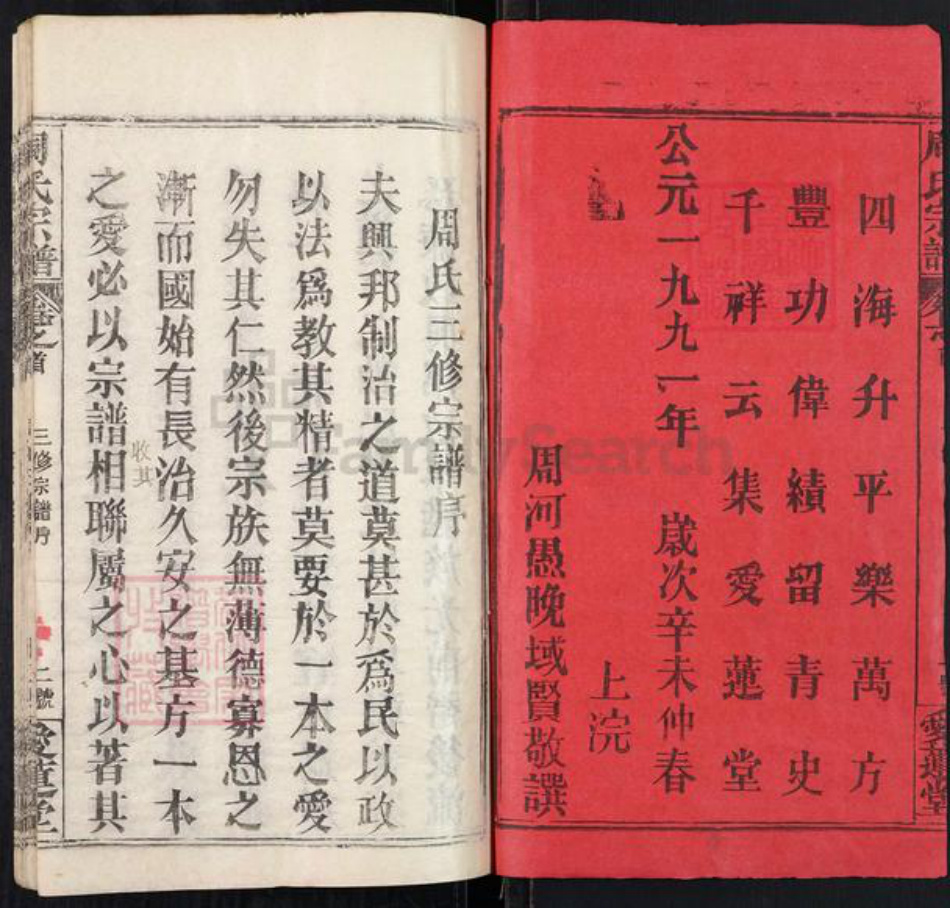 周氏宗譜
四海升平樂萬方
豐功偉績留青史
千祥云集愛蓮堂
公元一九九一年 歲次辛未仲春
上浣
周河愚晚域賢敬譔
愛蓮堂
周氏三修宗譜序
夫興邦制治之道莫甚於爲民以政
以法爲教其精者莫要於一本之愛
勿失其仁然後宗族無薄德寡恩之
漸而國始有長治久安之基方一本
收其
之愛必以宗譜相聯屬之心以著其
周氏宗譜
卷之首
三修宗譜序
二號
愛蓮堂
FamilySearch